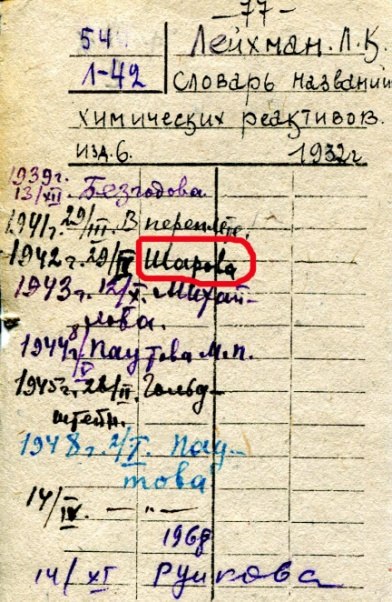 — 77 —
54 Лейхман. Л.К.
Л-42 Словарь названий
химических реактивов.
изд. 6. 1932г
1939г.
13/XII. Безгодова
1941г. 29/III. В переплёте.
1942г. 29/IV Шарова
1943г. 12/X. Михай-
лова.
1944г. 8/V Паутова М.П.
1945г. 28/II. Гольд-
штейн.
1948г. 2/I. Пау-
това
14/IX. — „ —
1968
14/XI Рушкова